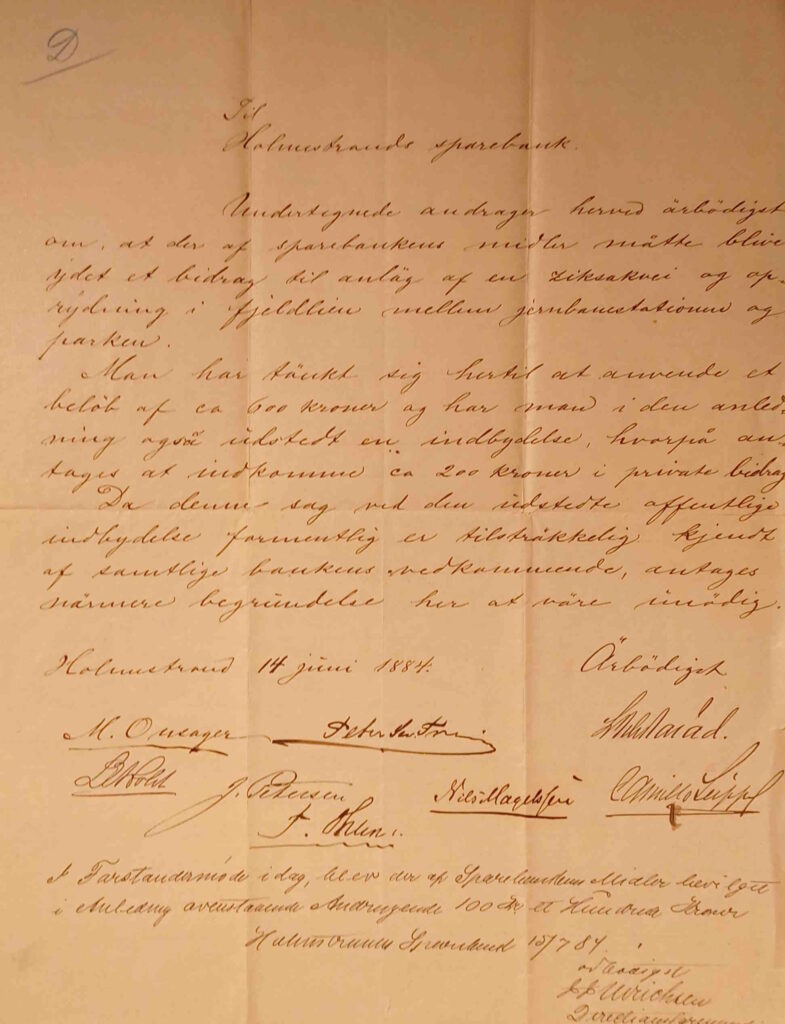 D
Til
Holmestrands sparebank.
Undertegnede andrager herved ärbödigst
om, at der af sparebankens midler måtte blive
ydet et bidrag til anläg af en ziksakvei og op-
rydning i fjeldlien mellem jernbanestationen og
parken.
Man har tänkt sig hertil at anvende et
belöb af ca 600 kroner og har man i den anled-
ning også udstedt en indbydelse, hvorpå an-
tages at indkomme ca 200 kroner i private bidrag
Da denne sag ved den udstedte offentlige
indbydelse formentlig er tilsträkkelig kjendt
af samtlige bankens vedkommende, antages
närmere begrundelse her at väre unödig.
Holmestrand 14 juni 1884. Ärbödigst
M. Onsager Peter
J. Petersen Nils Magelssen Camillo
F.
I Forstandermöde i dag, blev der af Sparebankens Midler bevilget
i Anledning ovenstaaende Andragende 100 Kr et Hundrede Kroner
Holmestrands Sparebank 15/7 84.
ærbödigst
J J Ulrichsen